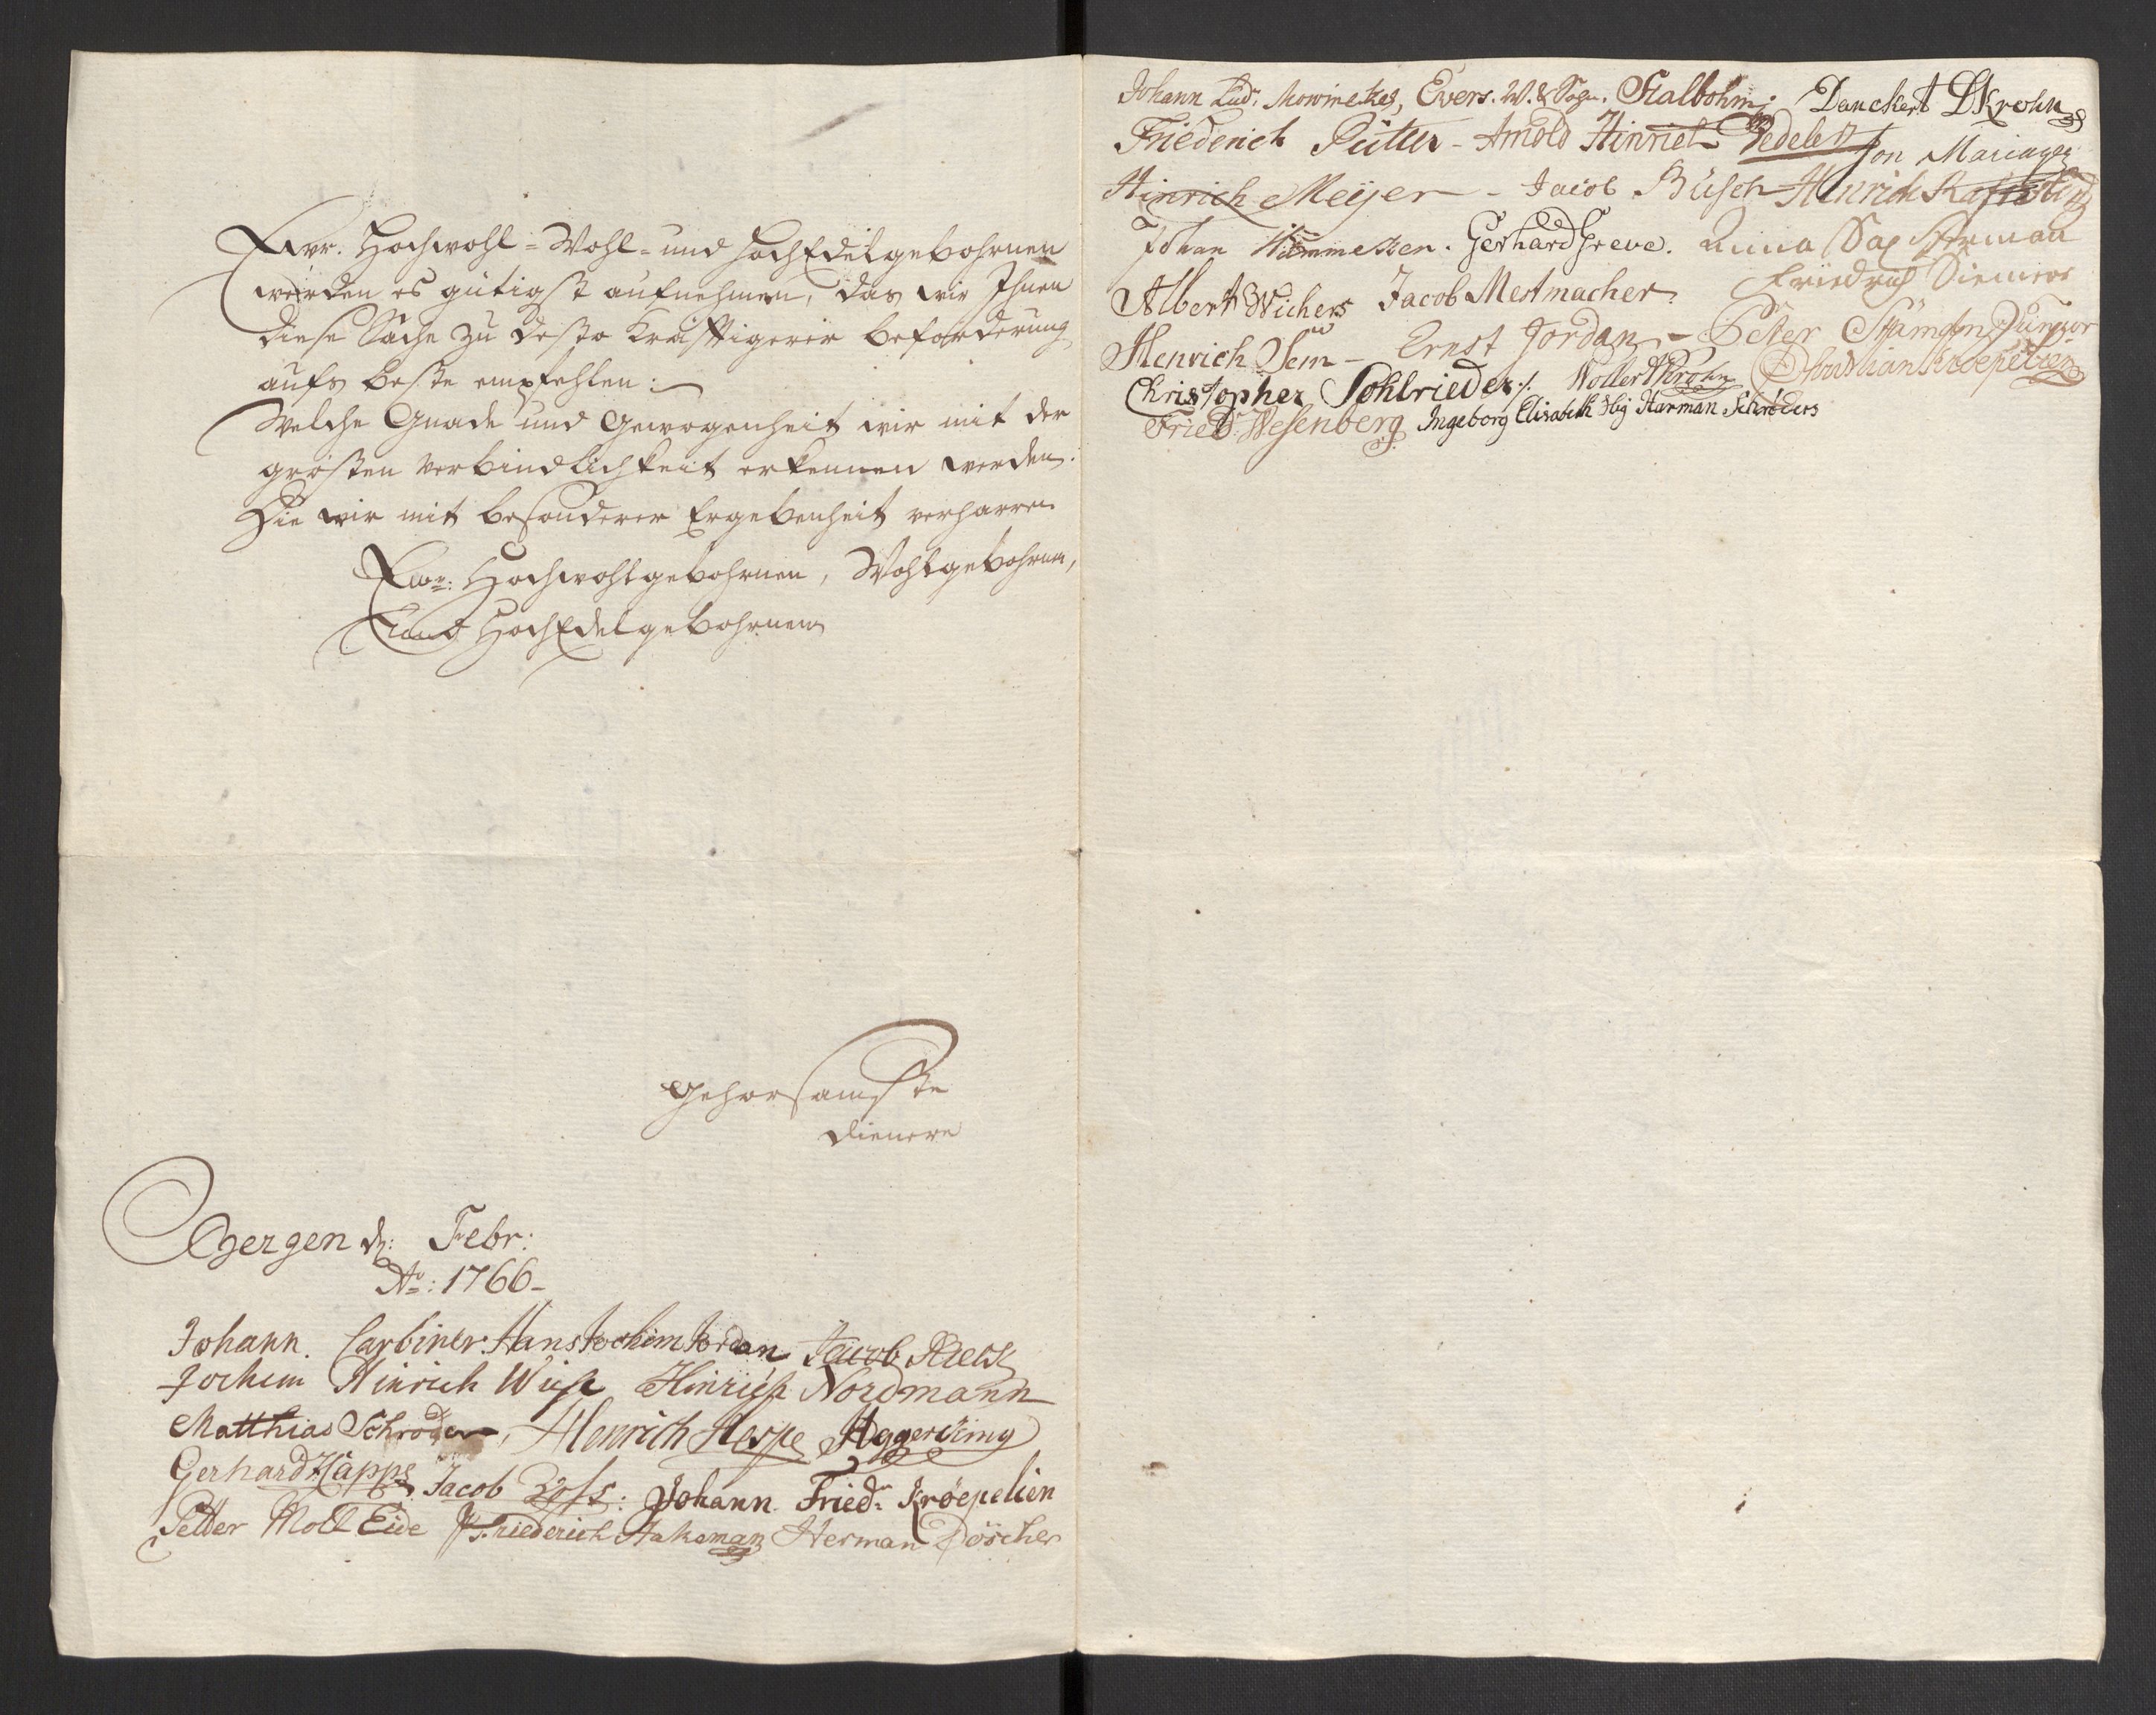 Ewr. Hochwohl- Wohl- und HochEdelgebohrnen
werden es gütigst aufnehmen, das wir Ihnen
diese Sache zu desto kräfftigerer beforderung
aufs beste empfehlen:
Welche Gnade und Gewogenheit wir mit der
grösten verbindlichkeit erkennen werden.
Die wir mit besonderer Ergebenheit verharren
Ewr: Hochwohlgebohrnen, Wohlgebohrnen,
und HochEdelgebohrnen
gehorsamste
dienere
Bergen d: Febr:
Ao: 1766-
Johann. Carbiner. Hans Jochim Jordan Jacob
Jochim Hinrich Wiese Hinrich Nordmann
Matthias Schröder, Henrich Hespe Aggerding
Gerhard Happe Jacob: Johann Fried: Krøepelien
Petter Moll Eide Friederich Hakeman Herman Döscher
Johann Lud: Mowinckel, Evers. W. &. Kalbohm; Danckert DKrohn
Friederich Pütter - Arnold Hinrich Vedeler Jon Mariager
Hinrich Meÿer - Jacob Büsch - Henrich
Johan. Gerhard Greve. Anna Harman
Albert Wichers Jacob Mestmacher. Friedrich Siemers
Henrich Sem - Ernst Jordan - Peter Stämer Junior
Christopher Pohlrieder ./. Wollert Krohn Christian Kroepelien
Fried: Wesenberg Ingeborg Elisabeth Sig Harman Schröders